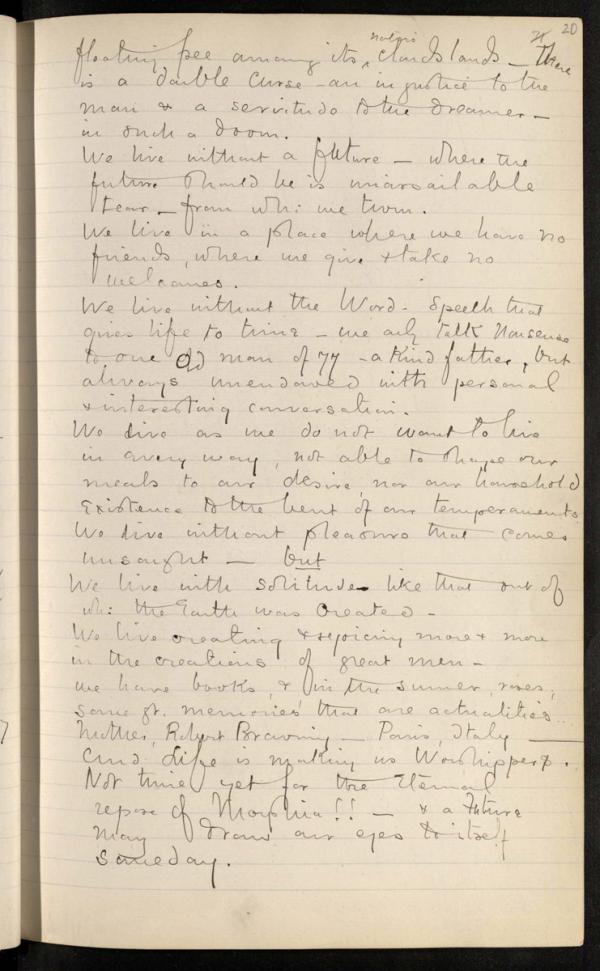 20
floating free among its nature's cloudslands — There
is a double curse — an injustice to the
man & a servitude to the dreamer —
in such a doom.
We live without a future — where the
future should be is unassailable
fear — from wh: we turn.
We live in a place where we have no
friends, where we give & take no
welcomes.
We live without the Word — Speech that
gives life to time — we only talk nonsense
to one old man of 77 — a kind father, but
always unendowed with personal
& interesting conversation.
We live as we do not want to live
in every way, not able to shape our
meals to our desire, nor our household
existence to the bent of our temperaments
We live without pleasure that comes
unsought — but
We live with solitude like that out of
wh: the Earth was created —
We live creating & rejoicing more & more
in the creations of great men —
we have books, & in the summer, roses,
some gt. memories that are actualities...
Mother, Robert Browning — Paris, Italy —
And Life is making us Worshippers.
Not time yet for the Eternal
repose of Morphia!! — & a Future
may draw our eyes to itself
someday.